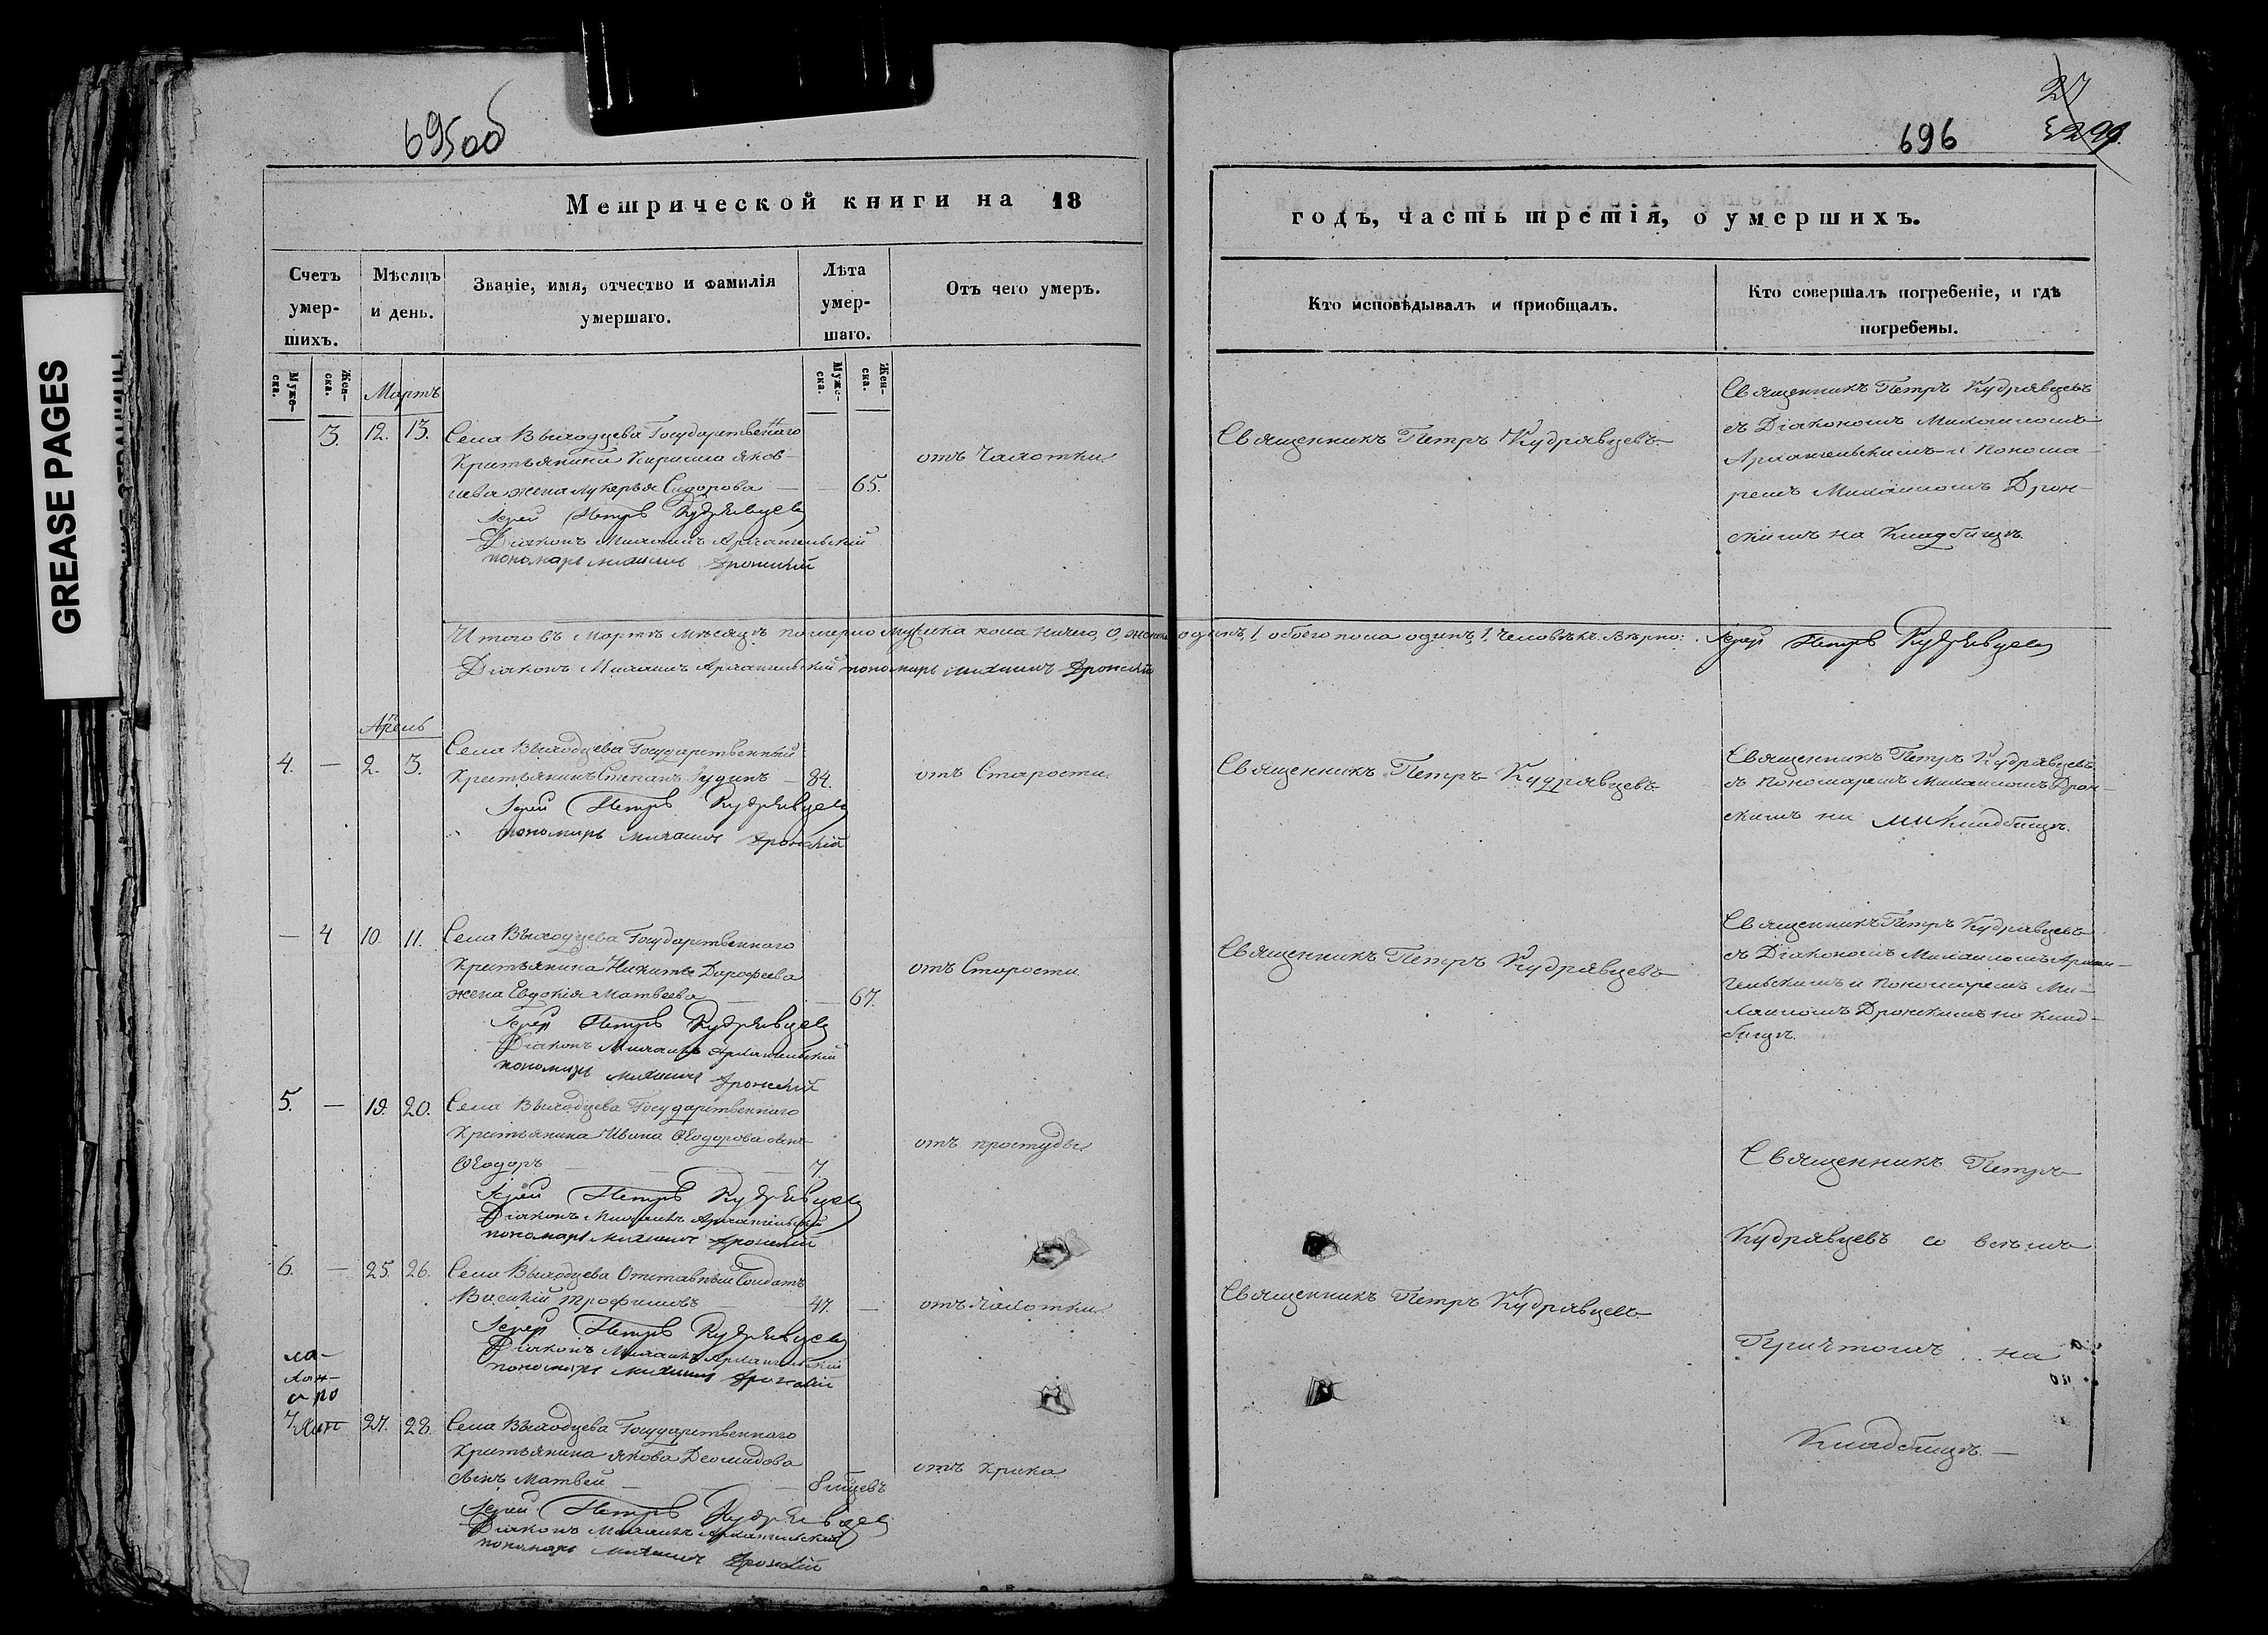 GREASE PAGES
695об
Метрической книги на 18
Счетъ умер-шихъ.
Мѣсяцъ и день.
Званіе, имя, отчество и фамилія умершаго.
Лѣта умер-шаго.
Отъ чего умеръ.
Муже-ска.
Жен-ска.
Муже-ска.
Жен-ска.
Мартъ
3. 12. 13. Села Выходцева Государственнаго
Крестьянина Кирилла Яков-
лева жена Лукерья Сидорова — 65.
отъ Чахотки
Іерей Петръ Кудрявцевъ
Діаконъ Михаилъ Архангельскій
пономарь Михаилъ Дронскій
Итого въ Мартѣ мѣсяцѣ померло мужеска пола ничего, 0, женска
Діаконъ Михаилъ Архангельскій пономарь Михаилъ Дронскій
Апрель
4. — 2. 3. Села Выходцева Государственный
Крестьянинъ Степанъ Гудинъ — 84.
отъ Старости
Іерей Петръ Кудрявцевъ
пономарь Михаилъ Дронскій
— 4 10. 11. Села Выходцева Государственнаго
Крестьянина Никиты Дорофеева
отъ Старости
жена Евдокія Матвеева — 67.
Іерей Петръ Кудрявцевъ
Діаконъ Михаилъ Архангельскій
пономарь Михаилъ Дронскій
5. — 19. 20. Села Выходцева Государственнаго
Крестьянина Ивана Ѳеодорова сынъ
отъ простуды
Ѳеодоръ — — — 7.
Іерей Петръ Кудрявцевъ
Діаконъ Михаилъ Архангельскій
пономарь Михаилъ Дронскій
6. — 25. 26. Села Выходцева Отставный Солдатъ
Василій Трофимовъ 47. —
отъ Чахотки
Іерей Петръ Кудрявцевъ
Діаконъ Михаилъ Архангельскій
пономарь Михаилъ Дронскій
7. 27. 28. Села Выходцева Государственнаго
Крестьянина Якова Деомидова
отъ крика
сынъ Матвей — —
Іерей Петръ Кудрявцевъ
Діаконъ Михаилъ Архангельскій
пономарь Михаилъ Дронскій
27
696
годъ, часть третія, о умершихъ.
Кто исповѣдывалъ и приобщалъ.
Кто совершалъ погребеніе, и гдѣ погребены.
Священникъ Петръ Кудрявцевъ
Священникъ Петръ Кудрявцевъ
съ Діакономъ Михаиломъ
Архангельскимъ и Понома-
ремъ Михаиломъ Дрон-
скимъ на Кладбищѣ
одинъ, 1. обоего пола одинъ, 1. Человѣкъ. Вѣрно: Іерей Петръ Кудрявцевъ
Священникъ Петръ Кудрявцевъ
Священникъ Петръ Кудрявцевъ
съ Пономаремъ Михаиломъ Дрон-
скимъ на Кладбищѣ.
Священникъ Петръ Кудрявцевъ
Священникъ Петръ Кудрявцевъ
съ Діакономъ Михаиломъ Архан-
гельскимъ и Пономаремъ Ми-
хаиломъ Дронскимъ на Клад-
бищѣ.
Священникъ Петръ
Кудрявцевъ со всѣмъ
Священникъ Петръ Кудрявцевъ
Причтомъ на
Кладбищѣ. —